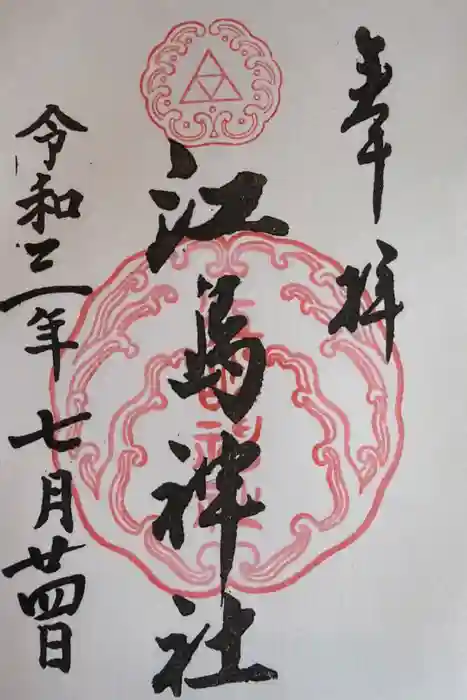 奉拝
江島神社
令和三年七月廿四日